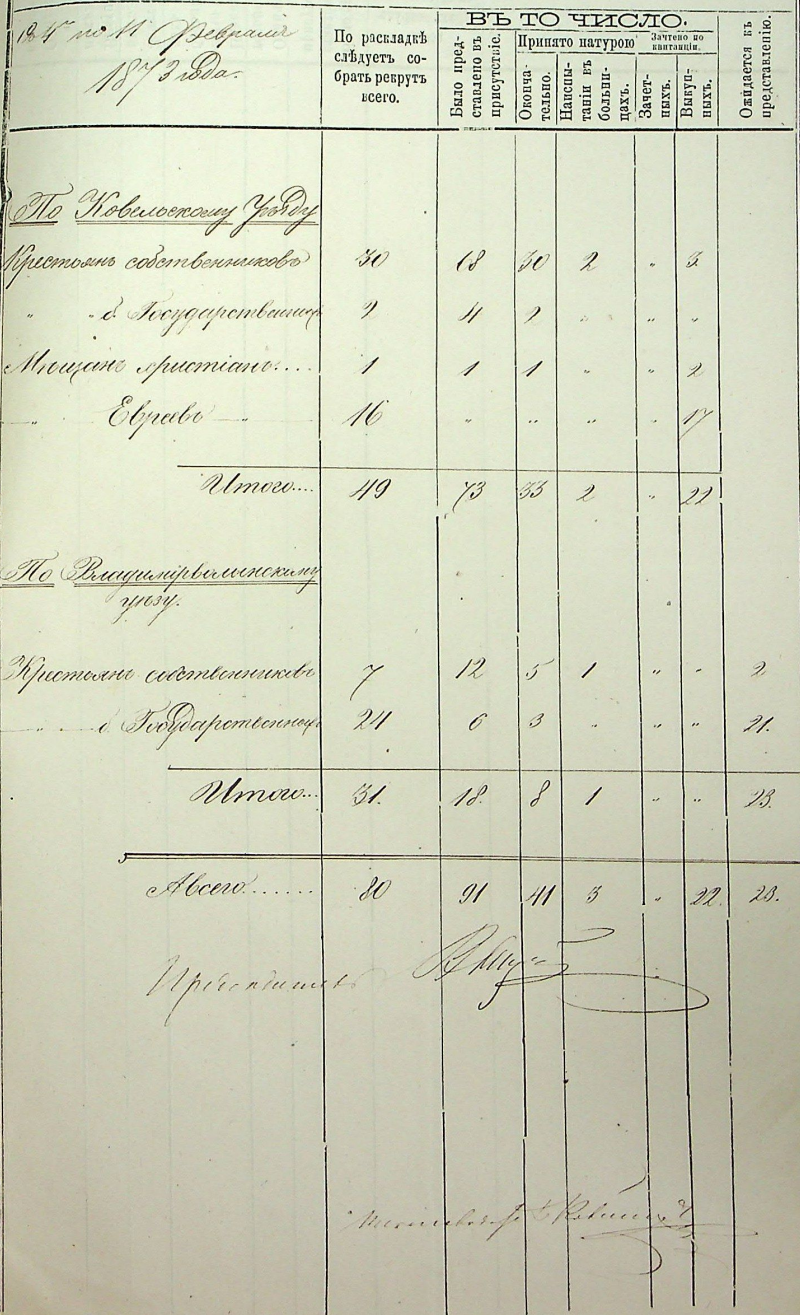 по 11 Февраля
1873 года.
По раскладкѣ слѣдуетъ собрать рекрутъ всего.
ВЪ ТО ЧИСЛО.
Было представлено въ присутствіе.
Принято натурою
Окончательно.
Наиспытаніи въ больницахъ.
Зачтено по квитанціи.
Зачетныхъ.
Выкупныхъ.
Ожидается къ представленію.
По Ковельскому Уѣзду
Крестьянъ собственниковъ 30 68 30 2 „ 3
„ „ б. Государственныхъ 2 4 2 „ „ „
Мѣщанъ христіанъ.... 1 1 1 „ „ 2
„ Евреевъ „ 16 „ „ „ „ 17
Итого.... 49 73 33 2 „ 22
По Владимірволынскому
уѣзду.
Крестьянъ собственниковъ 7 12 5 1 „ „ 2
„ б. Государственныхъ 24 6 3 „ „ „ 21.
Итого... 31. 18. 8 1 „ „ 23.
А всего....... 80 91 41 3 „ 22. 23.
Предсѣдатель